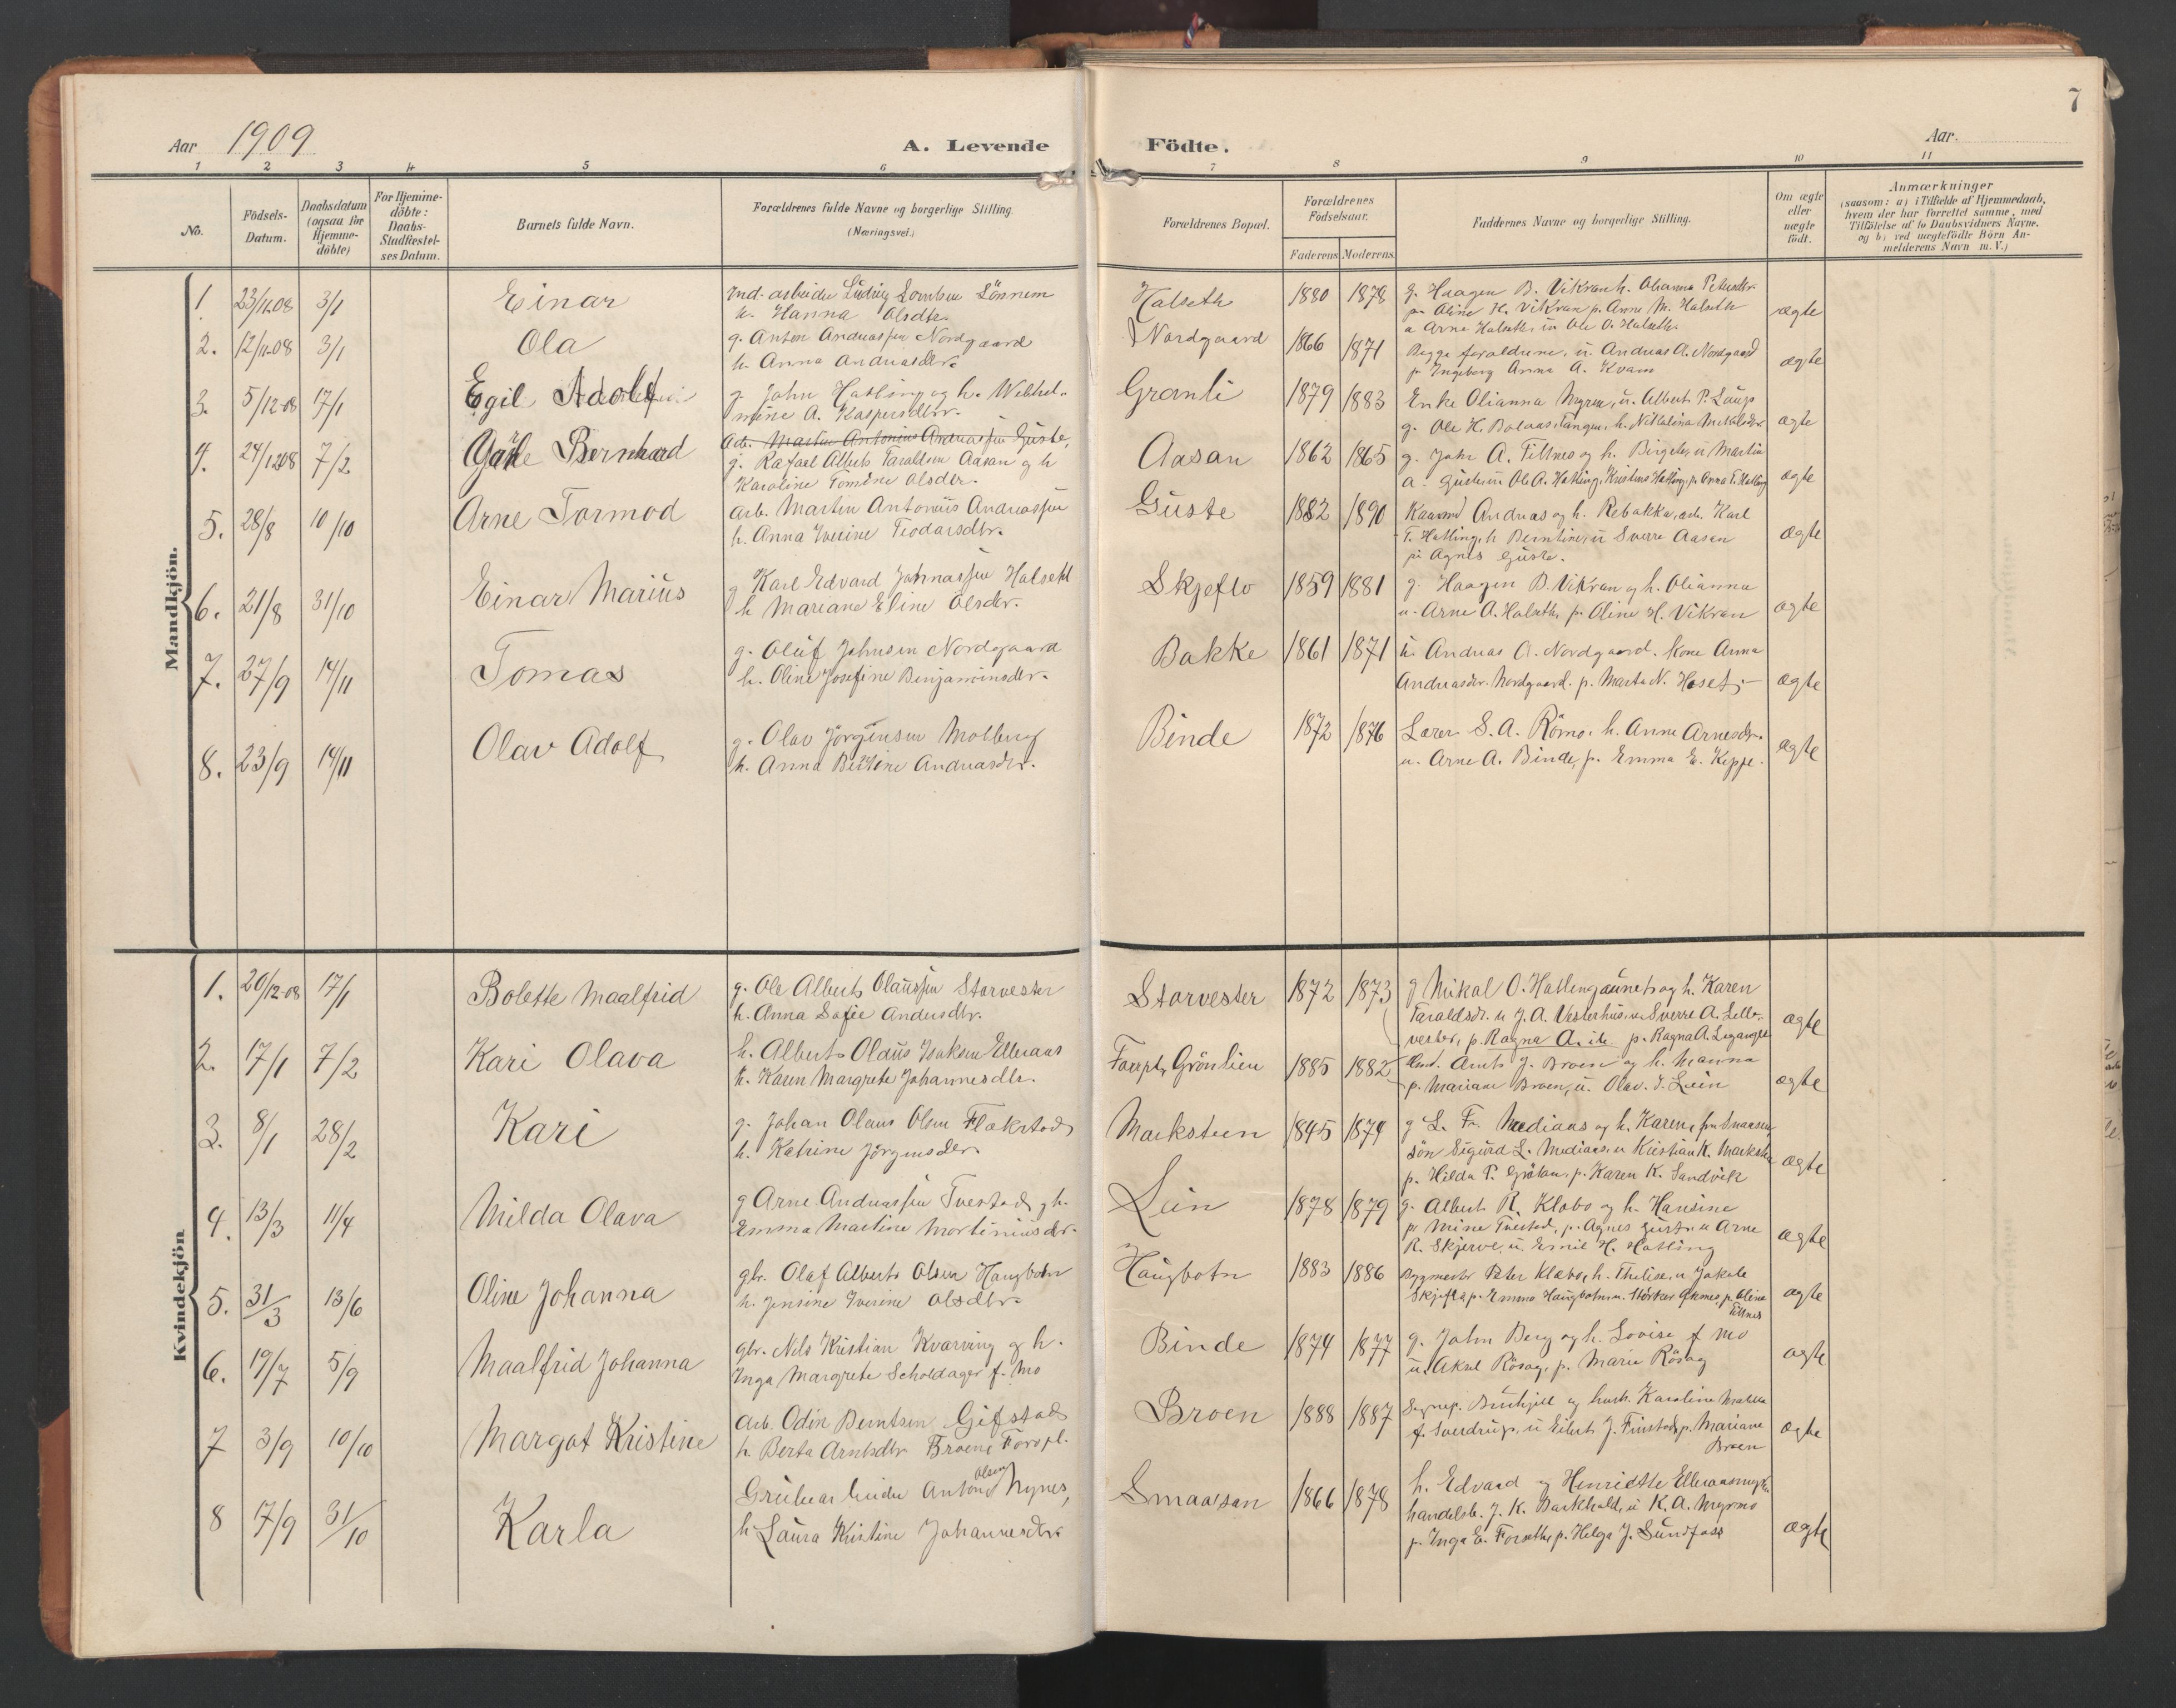 7
Aar 1909
A. Levende Födte.
Aar.
1 2 3 4 5 6 7 8 9 10 11
No.
Födsels-Datum.
Daabsdatum (ogsaa for Hjemme-döbte)
For Hjemme-döbte: Daabs-Stadfæstel-ses Datum.
Barnets fulde Navn.
Forældrenes fulde Navne og borgerlige Stilling. (Næringsvei.)
Forældrenes Bopæl.
Forældrenes Födselsaar.
Faderens Moderens
Faddernes Navne og borgerlige Stilling.
Om ægte eller uægte födt.
Anmærkninger (saasom: a) i Tilfælde af Hjemmedaab, hvem der har forrettet samme, med Tilföielse af to Daabsvidners Navne. og b) ved uægtefödte Börn An-melderens Navn m.V.)
Mandkjön.
1. 23/11.08 3/1 Einar
Ind. arbeider Ludvig Lorntsen Sönnem
h. Hanna Olsdtr.
Halseth 1880 1878
g. Haagen B. Vikran h. Olianna Petersdtr.
p. Oline H. Vikran p. Anne M. Halseth
u Arne Halseth, u Ole O. Halseth
ægte
2. 12/11-08 3/1 Ola
g. Anton Andreassen Nordgaard
h. Anna Andreasdtr.
Nordgaard 1866 1871
Begge forældrene, u. Andreas A. Nordgaard
p Ingeborg Anna A. Kvam
ægte
3. 5/12-08 17/1 Egil Adolf
g. John Hatling og h. Wilhel-
mine A. Kaspersdtr.
Grønli 1879 1883
Enke Olianna Myren, u. Albert P. Laup
g. Ole H. Bolaas, Tangen, h. Nikoline Mikalsdtr
ægte
4. 24/12 08 7/2 Bernhard
Arb. Martin Antonius Andreassen Guste,
g. Rafael Alberts Taraldsen Aasan og h
Karoline Tomine Olsdtr.
Aasan 1862 1865
g. John A. Tillnes og h. Birgete, u Martin
a. Guste u Ole A. Hatling, Kristens Hatling, p. Anna T. Hatling
ægte
5. 28/8 10/10 Arne Tormod
Arb. Martin Antonius Andreassen
h. Anna Iverine Teodorsdtr.
Guste 1882 1890
Kaarmd Andreas og h. Rebekka, arb. Karl
T. Hatling, h Berntine, u Sverre Aasan
pi Agnes Guste.
ægte
6. 21/8 31/10 Einar Marius
g Karl Edvard Johnassen Halseth
h Mariane Eline Olsdtr.
Skjeflo 1859 1881
g. Haagen B. Vikran og h. Olianna
u. Arne A. Halseth, p. Oline H. Vikran
ægte
7. 27/9 14/11 Tomas
g. Oluf Johnsen Nordgaard
h. Oline Josefine Benjaminsdtr.
Bakke 1861 1871
u. Andreas A. Nordgaard. kone Anna
Andreasdtr. Nordgaard. p. Marta N. Haset.
ægte
8. 23/9 14/11 Olav Adolf
g. Olav Jörgensen Molberg
h. Anna Bertine Andreasdtr.
Binde 1872 1876
Lærer S. A. Römo. h. Anne Arnesdtr.
u. Arne A. Binde, p. Emma E. Keppe.
ægte
Kvindekjön
1. 20/12-08 17/1 Bolette Maalfrid
g. Ole Alberts Olaussen Storvester
h. Anna Sofie Andersdtr.
Storvester 1872 1873
g Mikal O. Hatlingaunet og h. Karen
Taraldsdtr. u J. A. Vesterhus, u Sverre A. Lille-
vester, p. Ragna A. p. Ragna A.
ægte
2. 17/1 7/2 Kari Olava
h. Alberts Olaus Isaksen Elleraas
h. Karen Margrete Johannesdtr.
Forrpl. Grönlien 1885 1882
Arnts J. Broen og h. Marina
p. Mariane Broen, u. Olav. J. Lein
ægte
3. 8/1 28/2 Kari
g. Johan Olaus Olsen Flekstad
h. Katrine Jörgensdtr.
Marksteen 1845 1874
g L. Fr. Mediaas og h. Karen,
sön Sigurd L. Mediaas, u Kristian K. Markst
p. Hilda P. p. Karen K. Sandvik
ægte
4. 13/3 11/4 Milda Olava
g Arne Andreassen Tvestad, g h.
Emma Martine Mortiniusdtr.
Lein 1878 1879
g. Albert R. Klobo og h. Hansine
p Mine Tvestad, p. Agnes Gust. u Arne
R. Skjerve, u. Emil H. Hatling
ægte
5. 31/3 13/6 Oline Johanna
gbr. Olaf Alberts Olsen Haugbotn
h. Jensine Iverine Olsdtr.
Haugbotn 1883 1886
Bygmester Peter Klabo, h. Theline, u Jakob
Skjefte p. Emma Haugbotn u. p. Oline
Tillnes
ægte
6. 19/7 5/9 Maalfrid Johanna
gbr. Nils Kristian Kvarving og h.
Inga Margrete Scholdager f. Mo
Binde 1874 1877
g. John Berg og h. Lovise f Mo
u. Aksel Rösag, p. Marie Rösag
ægte
7 3/9 10/10 Margot Kristine
Arb. Odin Berntsen Gifstad
h Berta Arntsdtr Broene Forrpl.
Broen 1888 1887
Sognep. Buchjell og hustr. Karoline
f. Sverdrup. u Eilert J. Finstad, p. Mariane
Broen
ægte
8 17/9 31/10 Karla
Grubearbeider Anton Olsen Mynes,
h Laura Kristine Johannesdtr
Smaasan 1866 1878
h. Edvard og Henriette Elleraasmyr
handelsb. J. K. Barkhald, u K. A. Myrmo
p. Inga E. Forseth, p. Helga J. Sundfass
ægte